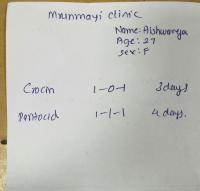 Mrunmayi clinic
Name: Aishwarya
Age: 27
Sex: F
Crocin 1-0-1 3 days
Pantocid 1-1-1 4 days.